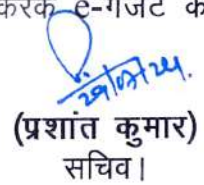 करके e-गजट क
(प्रशांत कुमार)
सचिव।